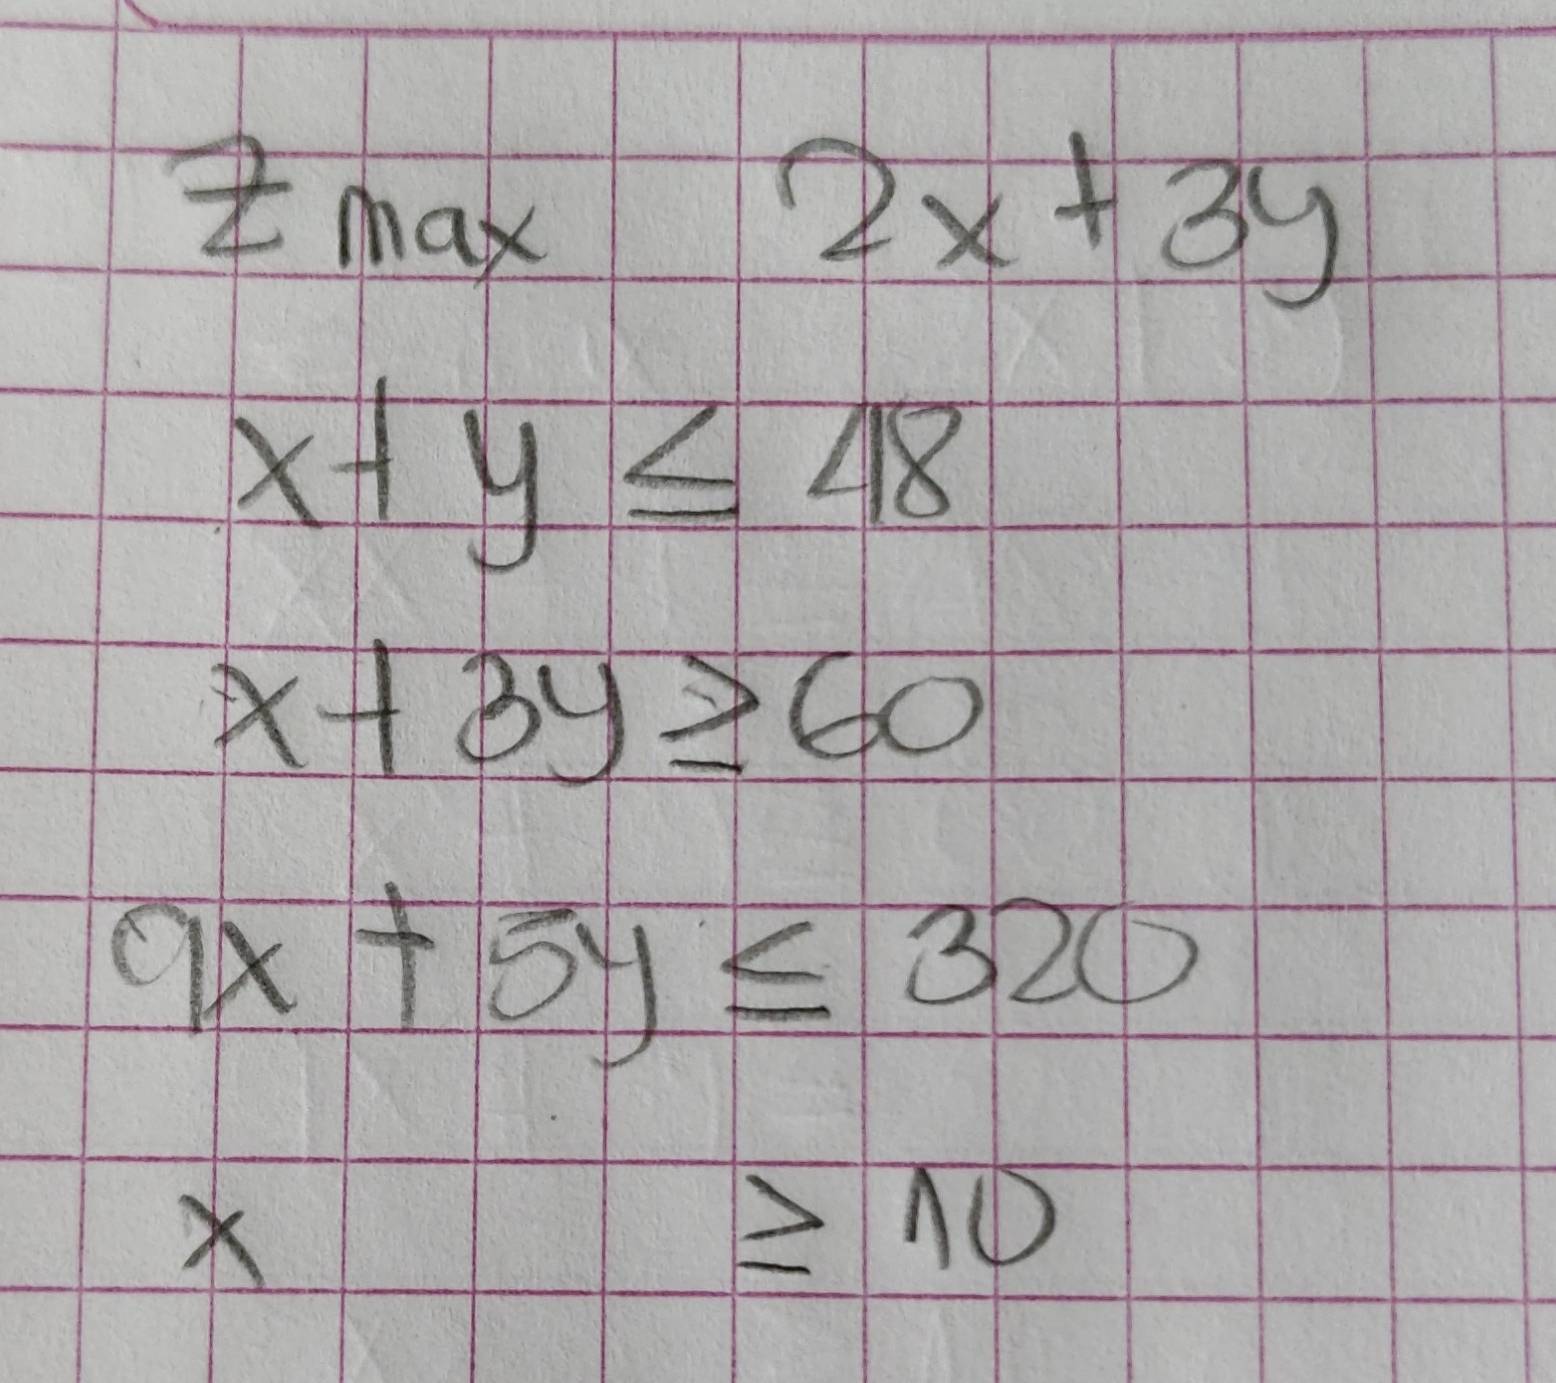 z max 2x + 3y
x + y ≤ 48
x + 3y ≥ 60
9x + 5y ≤ 320
x ≥ 10